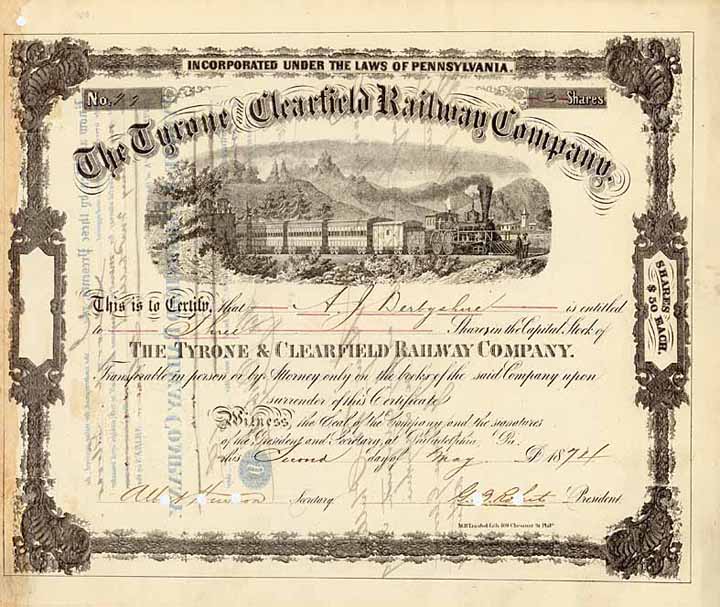 INCORPORATED UNDER THE LAWS OF PENNSYLVANIA.
No. 97
3 Shares
The Tyrone and Clearfield Railway Company.
SHARES $50 EACH.
This is to Certify, that A. J. Derbyshire is entitled
to Three Shares in the Capital Stock of
THE TYRONE & CLEARFIELD RAILWAY COMPANY.
Transferable in person or by Attorney only on the books of the said Company upon
surrender of this Certificate
Witness the Seal of the Company and the signatures
of the President and Secretary, at Philadelphia, Pa.
this Second day of May 1874
Secretary. G. B. Roberts President